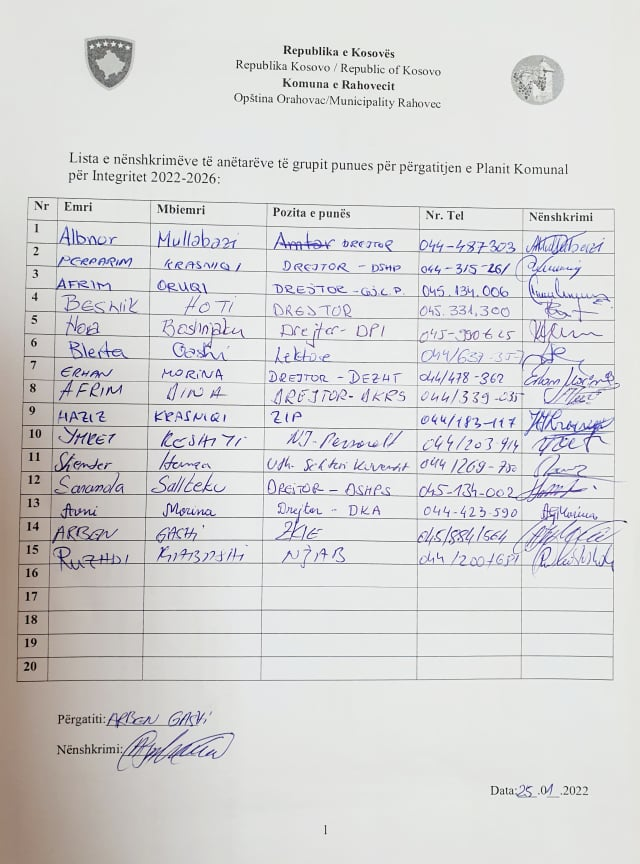 Republika e Kosovës
Republika Kosovo / Republic of Kosovo
Komuna e Rahovecit
Opština Orahovac/Municipality Rahovec
Lista e nënshkrimëve të anëtarëve të grupit punues për përgatitjen e Planit Komunal
për Integritet 2022-2026:
Nr Emri Mbiemri Pozita e punës Nr. Tel Nënshkrimi
1 Albnor Mullabazi DREJTOR 044-487303
2 PERPARIM KRASNIQI DREJTOR - DSHP 044-315-261
3 AFRIM DREJTOR 045.134.006
4 BESNIK HOTI DREJTOR 045.331.300
5 Nora Drejtor - DPI
6 Blerta Gashi Lektore
7 ERHAN MORINA DREJTOR - DEZHT 044/478-362
8 AFRIM DINA DREJTOR - AKRS 044/339-035
9 HAZIZ KRASNIQI ZIP 044/183-117
10 YMRET NJ-Personell 044/203 914
11 Skender Hamza
12 Saranda Sallteku DREJTOR - DSHPS 045-134-002
13 Avni Morina Drejtor - DKA 044-423-590
14 ARBEN GASHI ZKIE 045/884/564
15 RUZHDI NJAB
16
17
18
19
20
Përgatiti: ARBEN GASHI
Nënshkrimi:
Data: 25.01.2022
1